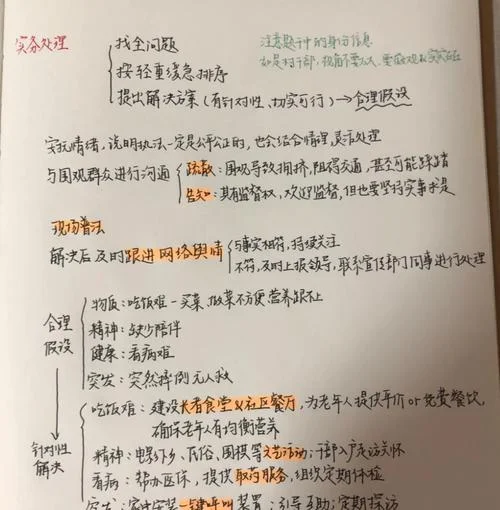 实务处理
找全问题
按轻重缓急排序
提出解决方案(有针对性、切实可行)→合理假设
注意题干中的身份信息
如是村干部,
安抚情绪,说明执法一定是公平公正的,也会结合情理,灵活处理
与围观群众进行沟通
疏散:围观导致拥挤,阻碍交通,甚至可能踩踏
告知:具有监督权,欢迎监督,但也要坚持实事求是
现场普法
解决后及时跟进网络舆情
与事实相符,持续关注
不符,及时上报领导,联系宣传部门同事进行处理
合理假设
物质:吃饭难-买菜、做菜不方便营养跟不上
精神:缺少陪伴
健康:看病难
突发:突然摔倒无人救
针对性解决
吃饭难:建设长者食堂&社区餐厅,为老年人提供平价or免费餐饮,
确保老年人有均衡营养
精神:电影下乡、民俗、围棋等文艺活动;干部入户走访关怀
看病:帮办医保,提供取药服务,组织定期体检
突发:家中安装一键呼叫装置;引导互助;定期探访